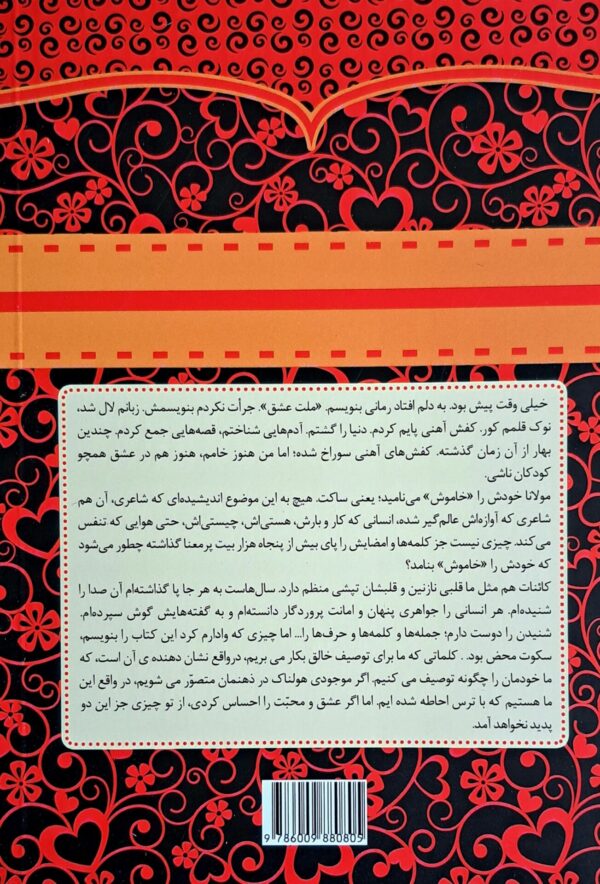 خیلی وقت پیش بود. به دلم افتاد رمانی بنویسم. «ملت عشق». جرأت نکردم بنویسمش. زبانم لال شد،
نوک قلمم کور. کفش آهنی پایم کردم. دنیا را گشتم. آدم‌هایی شناختم، قصه‌هایی جمع کردم. چندین
بهار از آن زمان گذشته. کفش‌های آهنی سوراخ شده؛ اما من هنوز خامم، هنوز هم در عشق همچو
کودکان ناشی.
مولانا خودش را «خاموش» می‌نامید؛ یعنی ساکت. هیچ به این موضوع اندیشیده‌ای که شاعری، آن هم
شاعری که آوازه‌اش عالم‌گیر شده، انسانی که کار و بارش، هستی‌اش، چیستی‌اش، حتی هوایی که تنفس
می‌کند. چیزی نیست جز کلمه‌ها و امضایش را پای بیش از پنجاه هزار بیت پرمعنا گذاشته چطور می‌شود
که خودش را «خاموش» بنامد؟
کائنات هم مثل ما قلبی نازنین و قلبشان تپشی منظم دارد. سال‌هاست به هر جا پا گذاشته‌ام آن صدا را
شنیده‌ام. هر انسانی را جواهری پنهان و امانت پروردگار دانسته‌ام و به گفته‌هایش گوش سپرده‌ام.
شنیدن را دوست دارم؛ جمله‌ها و کلمه‌ها و حرف‌ها را... اما چیزی که وادارم کرد این کتاب را بنویسم،
سکوت محض بود. . کلماتی که ما برای توصیف خالق بکار می بریم، درواقع نشان دهنده ی آن است، که
ما خودمان را چگونه توصیف می کنیم. اگر موجودی هولناک در ذهنمان متصوّر می شویم، در واقع این
ما هستیم که با ترس احاطه شده ایم. اما اگر عشق و محبّت را احساس کردی، از تو چیزی جز این دو
پدید نخواهد آمد.
9 786009 880805